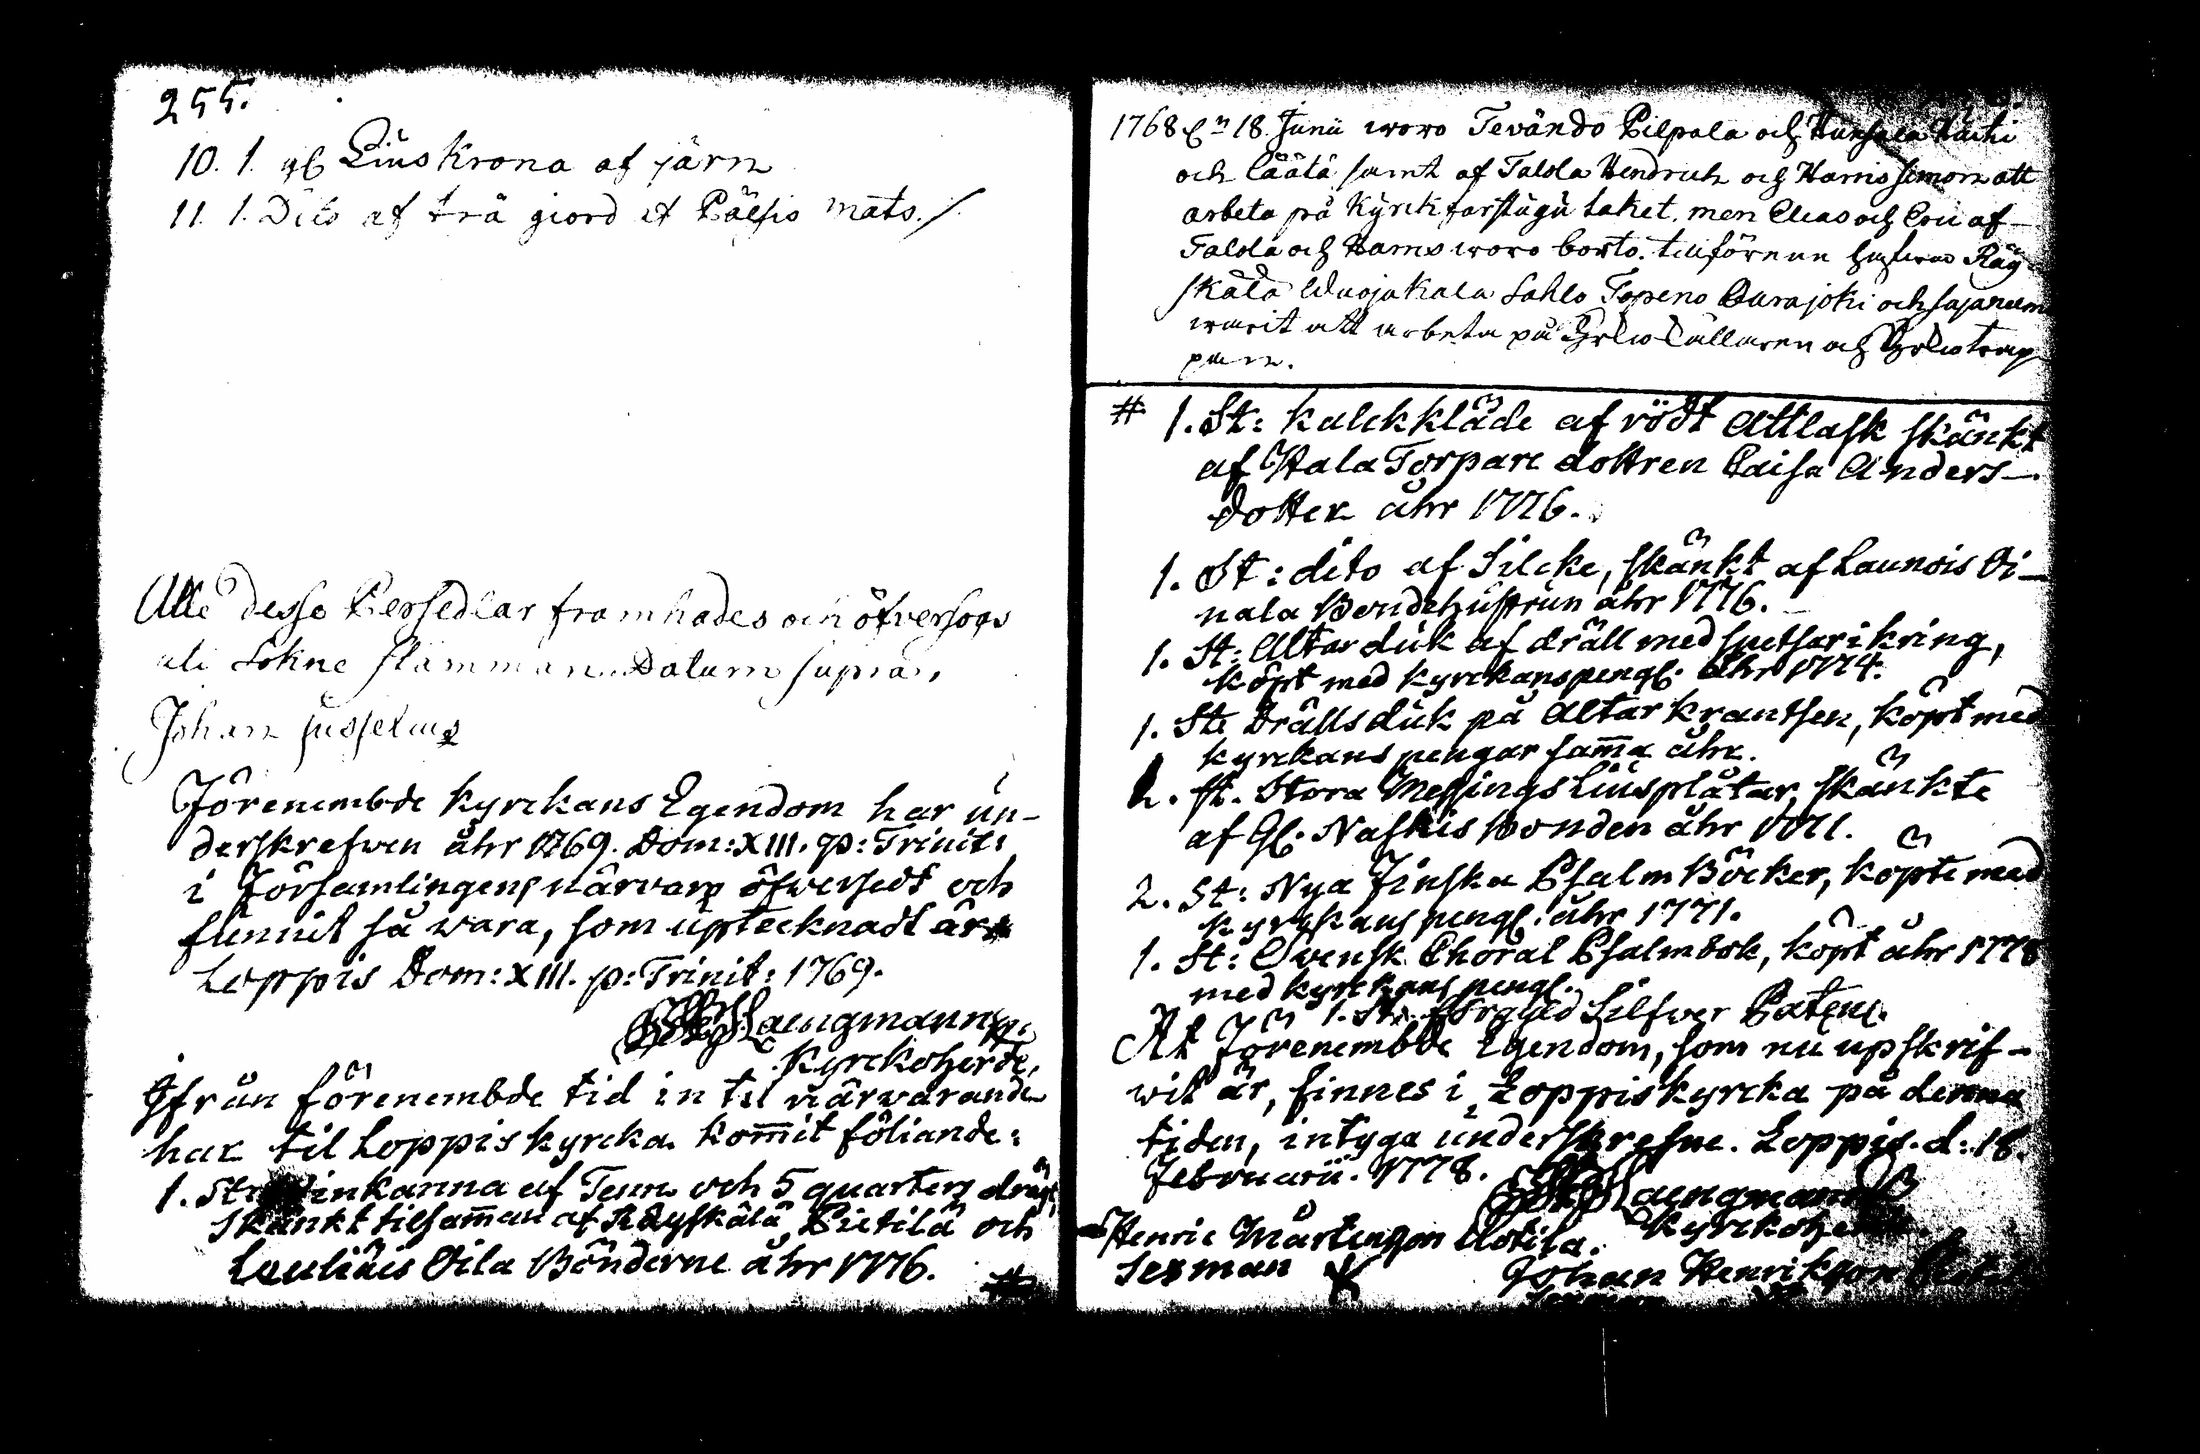 255.
10. 1. gl Liuskrona af järn
11. 1. Dito af trä giord af Pälsis mats./.
Alle desse Persedlar framhades och öfversogs
uti Sokne stämman. Datum supra.
Johan
Förenembde kyrckans Egendom har un-
derskrefwen åhr 1769. Dom: XIII. p: Trinit:
i Församlingens närvaro öfwersedt och
funnit så vara, som uptecknadt är
Loppis Dom: XIII. p: Trinit: 1769.
Laengmann
Kyrckoherde,
Ifrån förenembde tid in til närvarande
har til Loppis kyrcka kom̅it föliande:
1. St: Winkanna af Tenn och 5 quarters drägt,
skänkt tilsam̅an af Räyskälä, Pietilä och
Leuliäis Oila Bönderne åhr 1776. #
1768 18 Junii woro Tevändo Pilpala och
och Läätä samt af Talola Hendrich och Harnis Simon att
arbeta på kyrck farstugu taket. men Elias och Eric af
Talola och Harnis woro borto. tillförene hafwa Räy
skälä Wuojakala Sahlo Topeno Aurajoki och Sajaniem
warit att arbeta på källaren och trap
pan.
# 1. St: kalckkläde af rödt Attlask skänkt
af Hala Torpare dottren Caisa Anders-
dotter åhr 1776.
1. St: dito af Silcke, skänkt af Launois Oi-
nala Bondehustrun åhr 1776.
1. St: Altar duk af dräll med spetsar ikring,
köpt med kyrckans peng. åhr 1774.
1. St: Drälls duk på Altar krantsen, köpt med
kyrckans pengar sam̅a åhr.
2. st. Stora Messings Liusplåtar, skänkte
af Gl. Naskis Bonden åhr 1771.
2. St: Nya Finska Psalm Böcker, köpte med
kyrckans peng. åhr 1771.
1. St: Svensk Choral Psalmbok, köpt åhr 1778
med kyrckans peng.
1. St: förgyld Silfwer Paten.
At Förenembde Egendom, som nu upskrif-
wit är, finnes i Loppis kyrcka på denna
tiden, intyga underskrefne. Loppis. d: 18.
Februarii. 1778. Laengmann
Kyrckoherde
Henric Mårtensson Uotila.
Sexman
Johan Henriksson